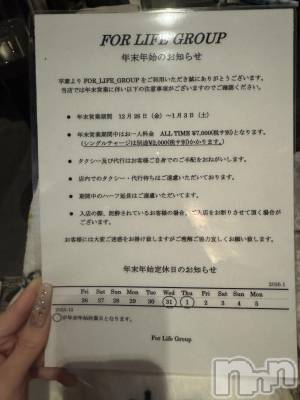 FOR LIFE GROUP
年末年始のお知らせ
平素より FOR_LIFE_GROUP をご利用いただき誠にありがとうございます。
当店では年末営業に伴い以下の注意事項がございますのでご確認ください。
● 年末営業期間 12月26日（金）～1月3日（土）
● 年末営業期間中はお一人料金 ALL TIME ¥7,000(税サ別)となります。
(シングルチャージは別途¥2,000(税サ別)かかります。)
● タクシー及び代行はお客様ご自身での手配をおねがいします。
● 店内でのタクシー・代行待ちはご遠慮いただいております。
● 期間中のハーフ延長はご遠慮いただいてます。
● 入店の際、泥酔されているお客様の場合、ご入店をお断りさせて頂く場合が
ございます。
お客様には大変ご迷惑をお掛け致しますがご理解ご協力宜しくお願い致します。
年末年始定休日のお知らせ
2026.1
Fri Sat Sun Mon Tue Wed Thu Fri Sat Sun Mon
26 27 28 29 30 31 1 2 3 4 5
2025.12
○が年末年始休業日となります。
For Life Group